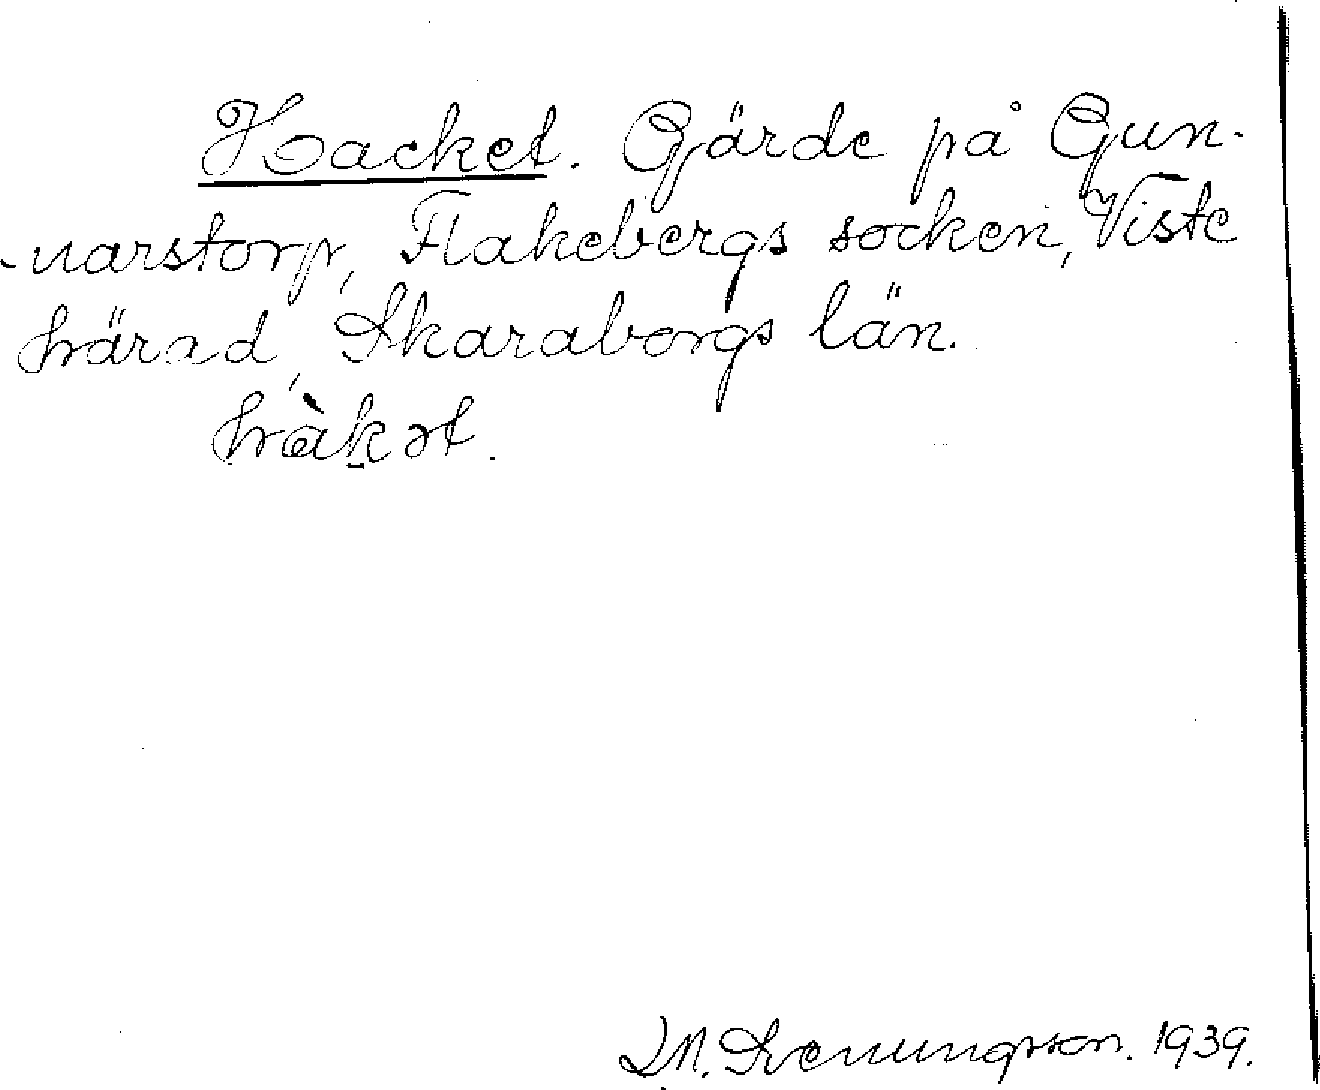 Hacket. Gärde på Gun-
narstorp, Flakebergs socken, Viste
härad, Skaraborgs län.
hàkət.
1939.